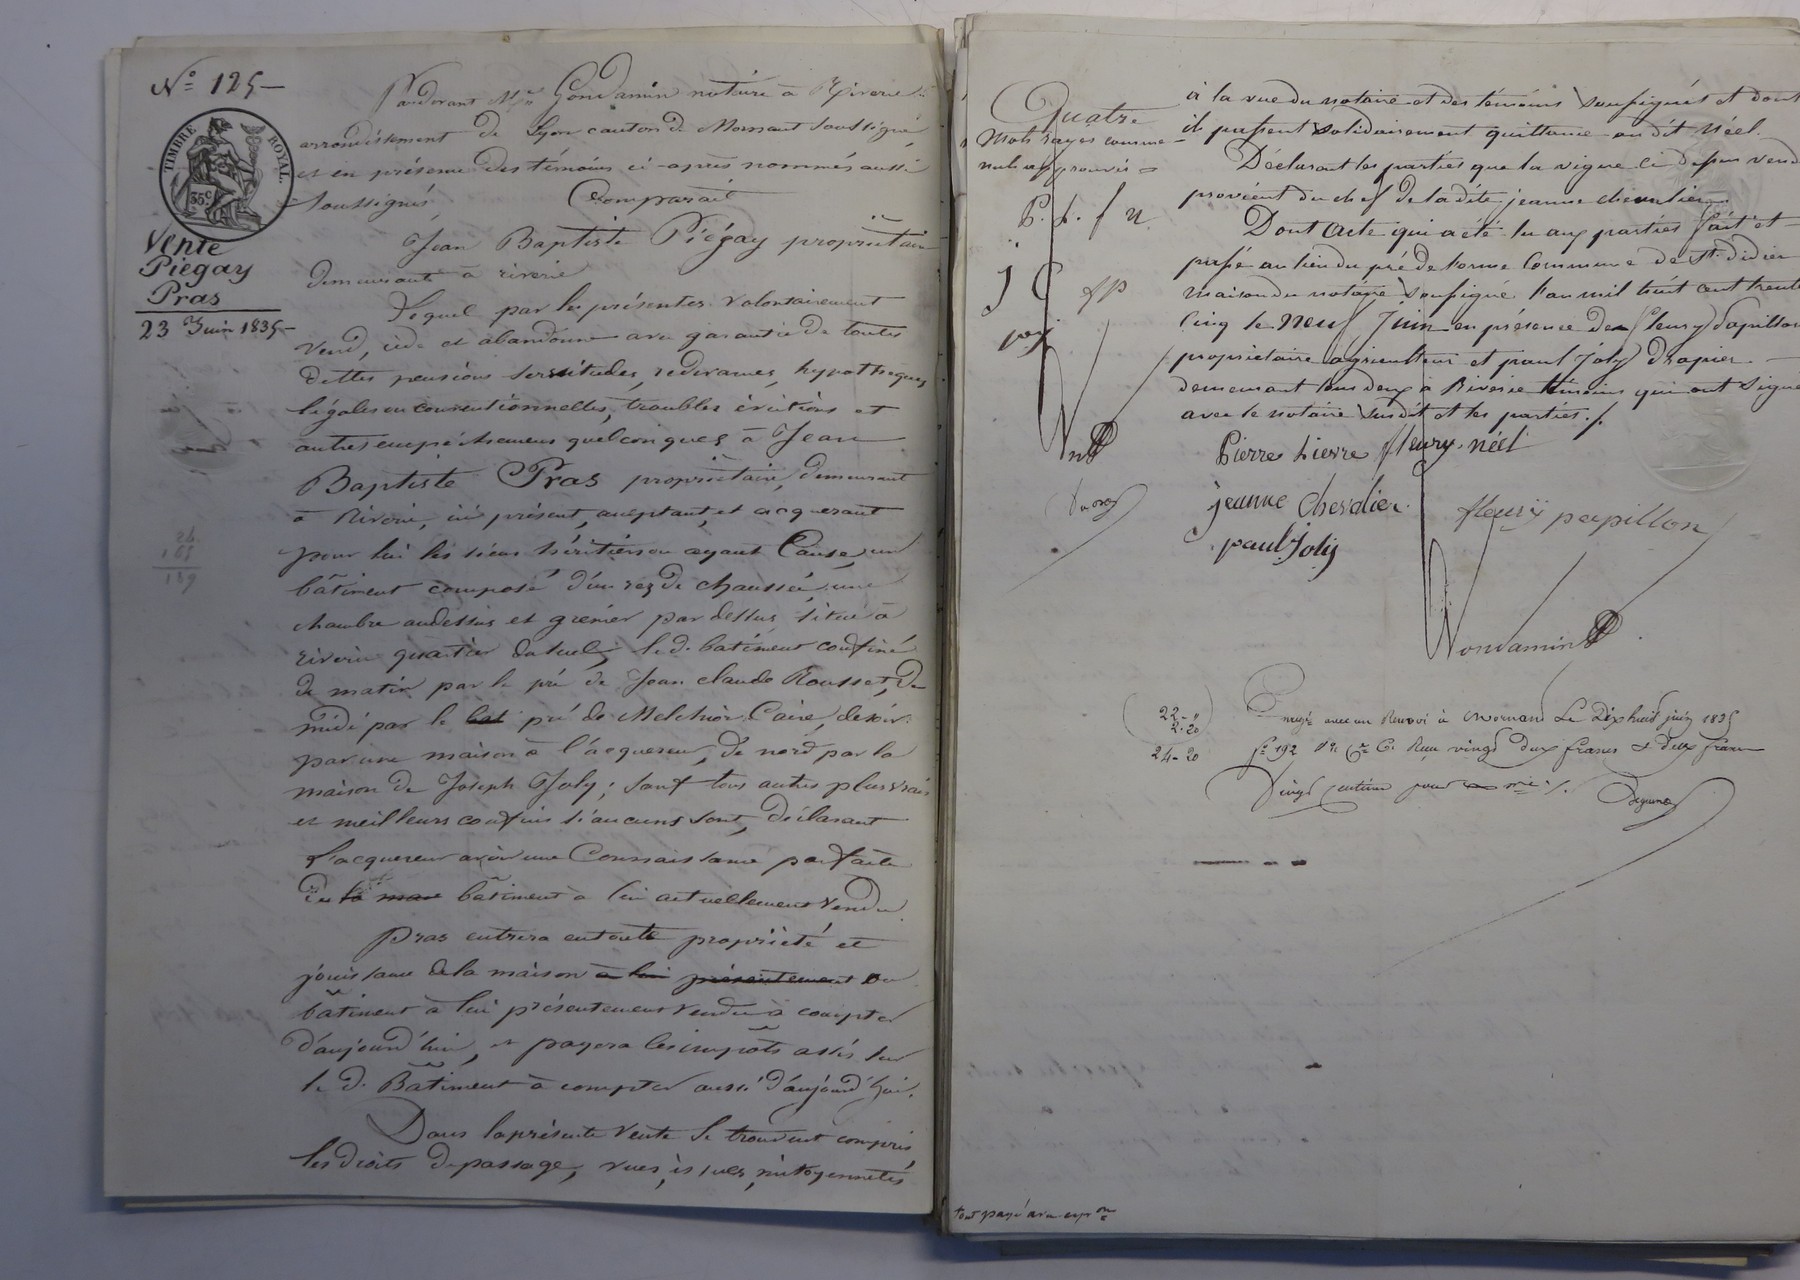 N° 125 —
TIMBRE ROYAL.
35c
Vente
Piégay
Pras
23 Juin 1835 —
Pardevant Me Gondamin notaire à Riverie
arrondissement de Lyon canton de Mornant soussigné,
et en présence des témoins ci-après nommés aussi
soussignés,
Comparait
Jean Baptiste Piégay propriétaire
demeurant à riverie
Lequel par les présentes volontairement
vend, cède et abandonne avec garantie de toutes
dettes pensions servitudes, redevances, hypothèques
légales ou conventionnelles, troubles évictions et
autres empêchemens quelconques à Jean
Baptiste Pras propriétaire, demeurant
à Riverie, ici présent, acceptant, et acquerant
pour lui les siens héritiers ou ayant Cause, un
bâtiment composé d'un rez de chaussée, une
chambre audessus et grenier par dessus situé à
riverie quartier le d. bâtiment confiné
de matin par le pré de Jean claude Rousset, de
midi par le bat pré de Melchior Caire, de soir
par une maison à l'acquereur, de nord par la
maison de Joseph Joly; sauf tous autres plus vrais
et meilleurs confins si aucuns sont, déclarant
l'acquereur avoir une Connaissance parfaite
du bâtiment à lui actuellement vendu.
Pras entrera en toute propriété et
jouissance de la maison à lui présentement ou
bâtiment à lui présentement vendu à compter
d'aujourd'hui, et payera les impôts assis sur
le d. Bâtiment à compter aussi d'aujourd'hui.
Dans la présente vente se trouvent compris
les droits de passage, vues, issues, mitoyennetés
24
165
189
Quatre
mots rayés comme
nuls approuvés =
P. L. f n.
J C fp
pj
à la vue du notaire et des témoins soussignés et dont
ils passent solidairement quittance au dit Néel.
Déclarant les parties que la vigne ci dessus vendu
provient du chef de la dite jeanne chevalier
Dont acte qui a été lu aux parties fait et
passé au lieu du pré de lorme Commune de St. Didier
maison du notaire soussigné l'an mil huit cent trente
cinq le neuf Juin en présence de fleury papillon
propriétaire agriculteur et paul Joly drapier
demeurant tous deux à Riverie témoins qui ont signé
avec le notaire susdit et les parties./.
Pierre Lierre fleury. néel
jeanne chevalier
fleury papillon
paul Joly
Gondamin
22 - "
2 - 20
24 - 20
Enregé avec un Renvoi à Mornant Le Dix huit juin 1835
fo 192 Vo Ce 6. Reçu vingt deux francs & deux francs
vingt centimes pour
tout payé